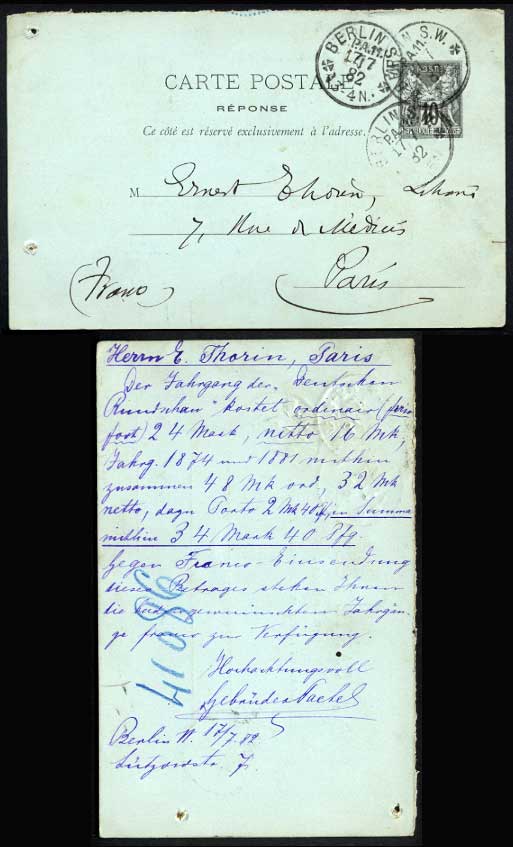 BERLIN S.W.
P.A.11.
17/7
82
3-4N.
CARTE POSTALE
RÉPONSE
Ce côté est réservé exclusivement à l'adresse.
M Ernest Thorin, Libraire
7, Rue de Médicis
Paris
(Franco)
Herrn E. Thorin, Paris
Der Jahrgang der „Deutschen
Rundschau" kostet ordinair (
fort) 24 Mark, netto 16 Mk,
Jahrg. 1874 und 1881 mithin
zusammen 48 Mk ord, 32 Mk
netto, dazu Porto 2 Mk 40 Pf, in Summa
mithin 34 Mark 40 Pfg.
Gegen Franco-Einsendung
dieses Betrages stehen Ihnen
die gewünschten Jahrgän-
ge franco zur Verfügung.
Hochachtungsvoll
Gebrüder Paetel
Berlin W. 17/7.82
Lützowstr. 7.